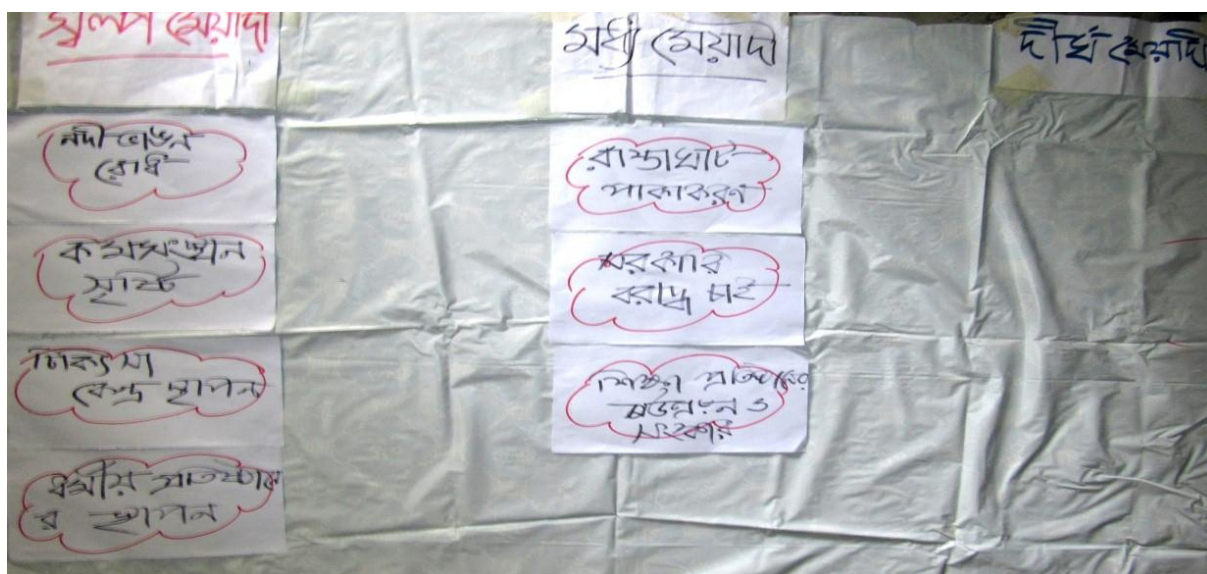 স্বল্প মেয়াদী
নদী ভাঙন
রোধ
কর্মসংস্থান
সৃষ্টি
চিকিৎসা
কেন্দ্র স্থাপন
ধর্মীয় প্রতিষ্ঠানে
র স্থাপন
মধ্য মেয়াদী
রাস্তাঘাট
পাকাকরণ
সরকারি
বরাদ্ধ চাই
শিক্ষা প্রতিষ্ঠানের
উন্নয়ন ও
সংস্কার
দীর্ঘ মেয়াদী